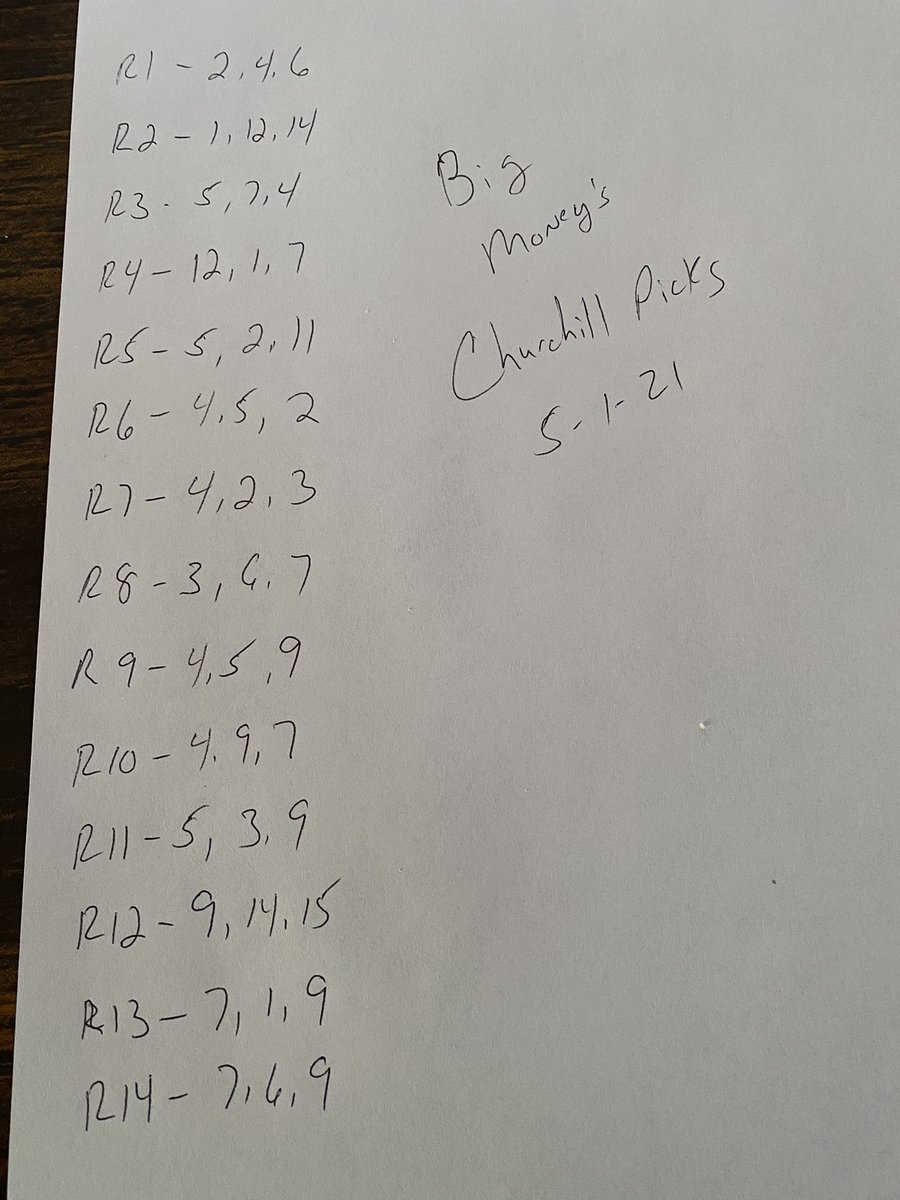 R1 - 2, 4, 6
R2 - 1, 12, 14
R3 - 5, 7, 4
R4 - 12, 1, 7
R5 - 5, 2, 11
R6 - 4, 5, 2
R7 - 4, 2, 3
R8 - 3, 6, 7
R9 - 4, 5, 9
R10 - 4, 9, 7
R11 - 5, 3, 9
R12 - 9, 14, 15
R13 - 7, 1, 9
R14 - 7, 6, 9
Big
Money's
Churchill Picks
5-1-21